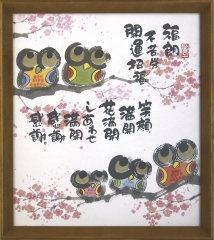 福朗
不苦労
開運招福
笑顔
満開
花満開
しあわせ
満開
感謝
感謝